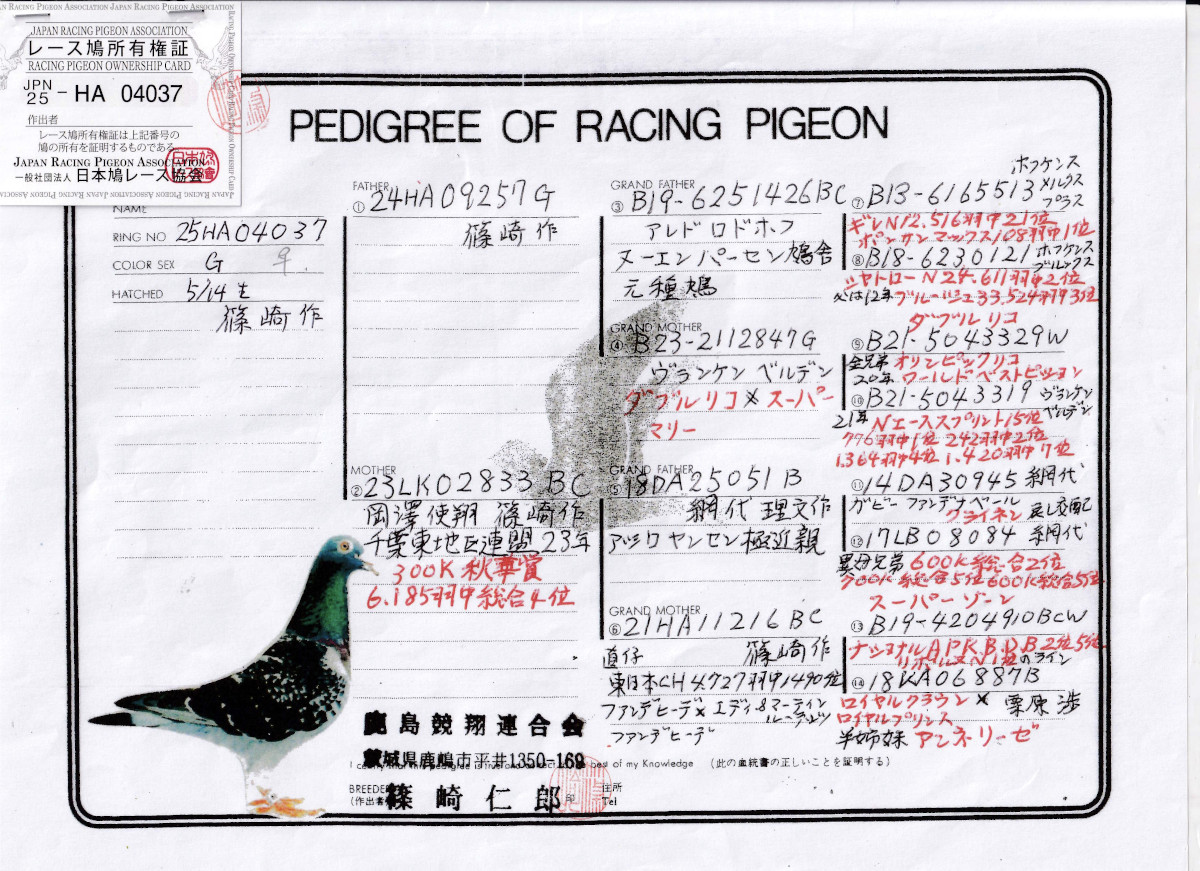 JAPAN RACING PIGEON ASSOCIATION
レース鳩所有権証
RACING PIGEON OWNERSHIP CARD
JPN 25 - HA 04037
作出者
レース鳩所有権証は上記番号の
鳩の所有を証明するものである。
JAPAN RACING PIGEON ASSOCIATION
一般社団法人 日本鳩レース協会
PEDIGREE OF RACING PIGEON
NAME
RING NO 25HA04037
COLOR SEX G ♀
HATCHED 5/14生
篠崎作
FATHER
① 24HA09257G
篠崎作
MOTHER
② 23LK02833BC
岡澤使翔 篠崎作
千葉東地区連盟23年
300K秋華賞
6.185羽中総合4位
GRAND FATHER
③ B19-6251426BC
アレド ロドホフ
ヌーエンパーセン鳩舎
元種鳩
GRAND MOTHER
④ B23-2112847G
ヴランケン ベルデン
ダブルリコ×スーパー
マリー
GRAND FATHER
⑤ 18DA25051B
網代理文作
アツロヤンセン極近親
GRAND MOTHER
⑥ 21HA11216BC
直仔 篠崎作
東日本CH4727羽中1490位
ファンデヒーデ×エディ&マーティン
ファンデヒーデ
ホフケンス
メルクス
プラス
⑦ B13-6165513
ギレN12.516羽中21位
ポンサンマックス108羽中1位
⑧ B18-6230121 ホフケンス
ブルックス
シャトローN24.611羽中2位
又は12年ブルージュ33.524羽3位
ダブルリコ
⑨ B21-5043329W
全兄弟 オリンピックリコ
20年 ワールドベストピジョン
⑩ B21-5043319 ヴランケン
ベルデン
21年 Nエーススプリント15位
776羽中1位 242羽中2位
1.364羽中4位 1.420羽中7位
⑪ 14DA30945 網代
ガビー ファンデナベール
クライネン 戻し交配
⑫ 17LB08084 網代
異母兄弟 600K総合2位
700K総合5位 600K総合5位
スーパーゾーン
⑬ B19-4204910BCW
ナショナルAPKBDB2位5位
⑭ 18KA06887B
ロイヤルクラウン× 栗原渉
ロイヤルプリンス
半姉妹 アンネリーゼ
鹿島競翔連合会
茨城県鹿嶋市平井1350-169
I certify that this pedigree is true and correct to the best of my Knowledge (此の血統書の正しいことを証明する)
BREEDER
(作出者) 篠崎仁郎 印
住所
Tel